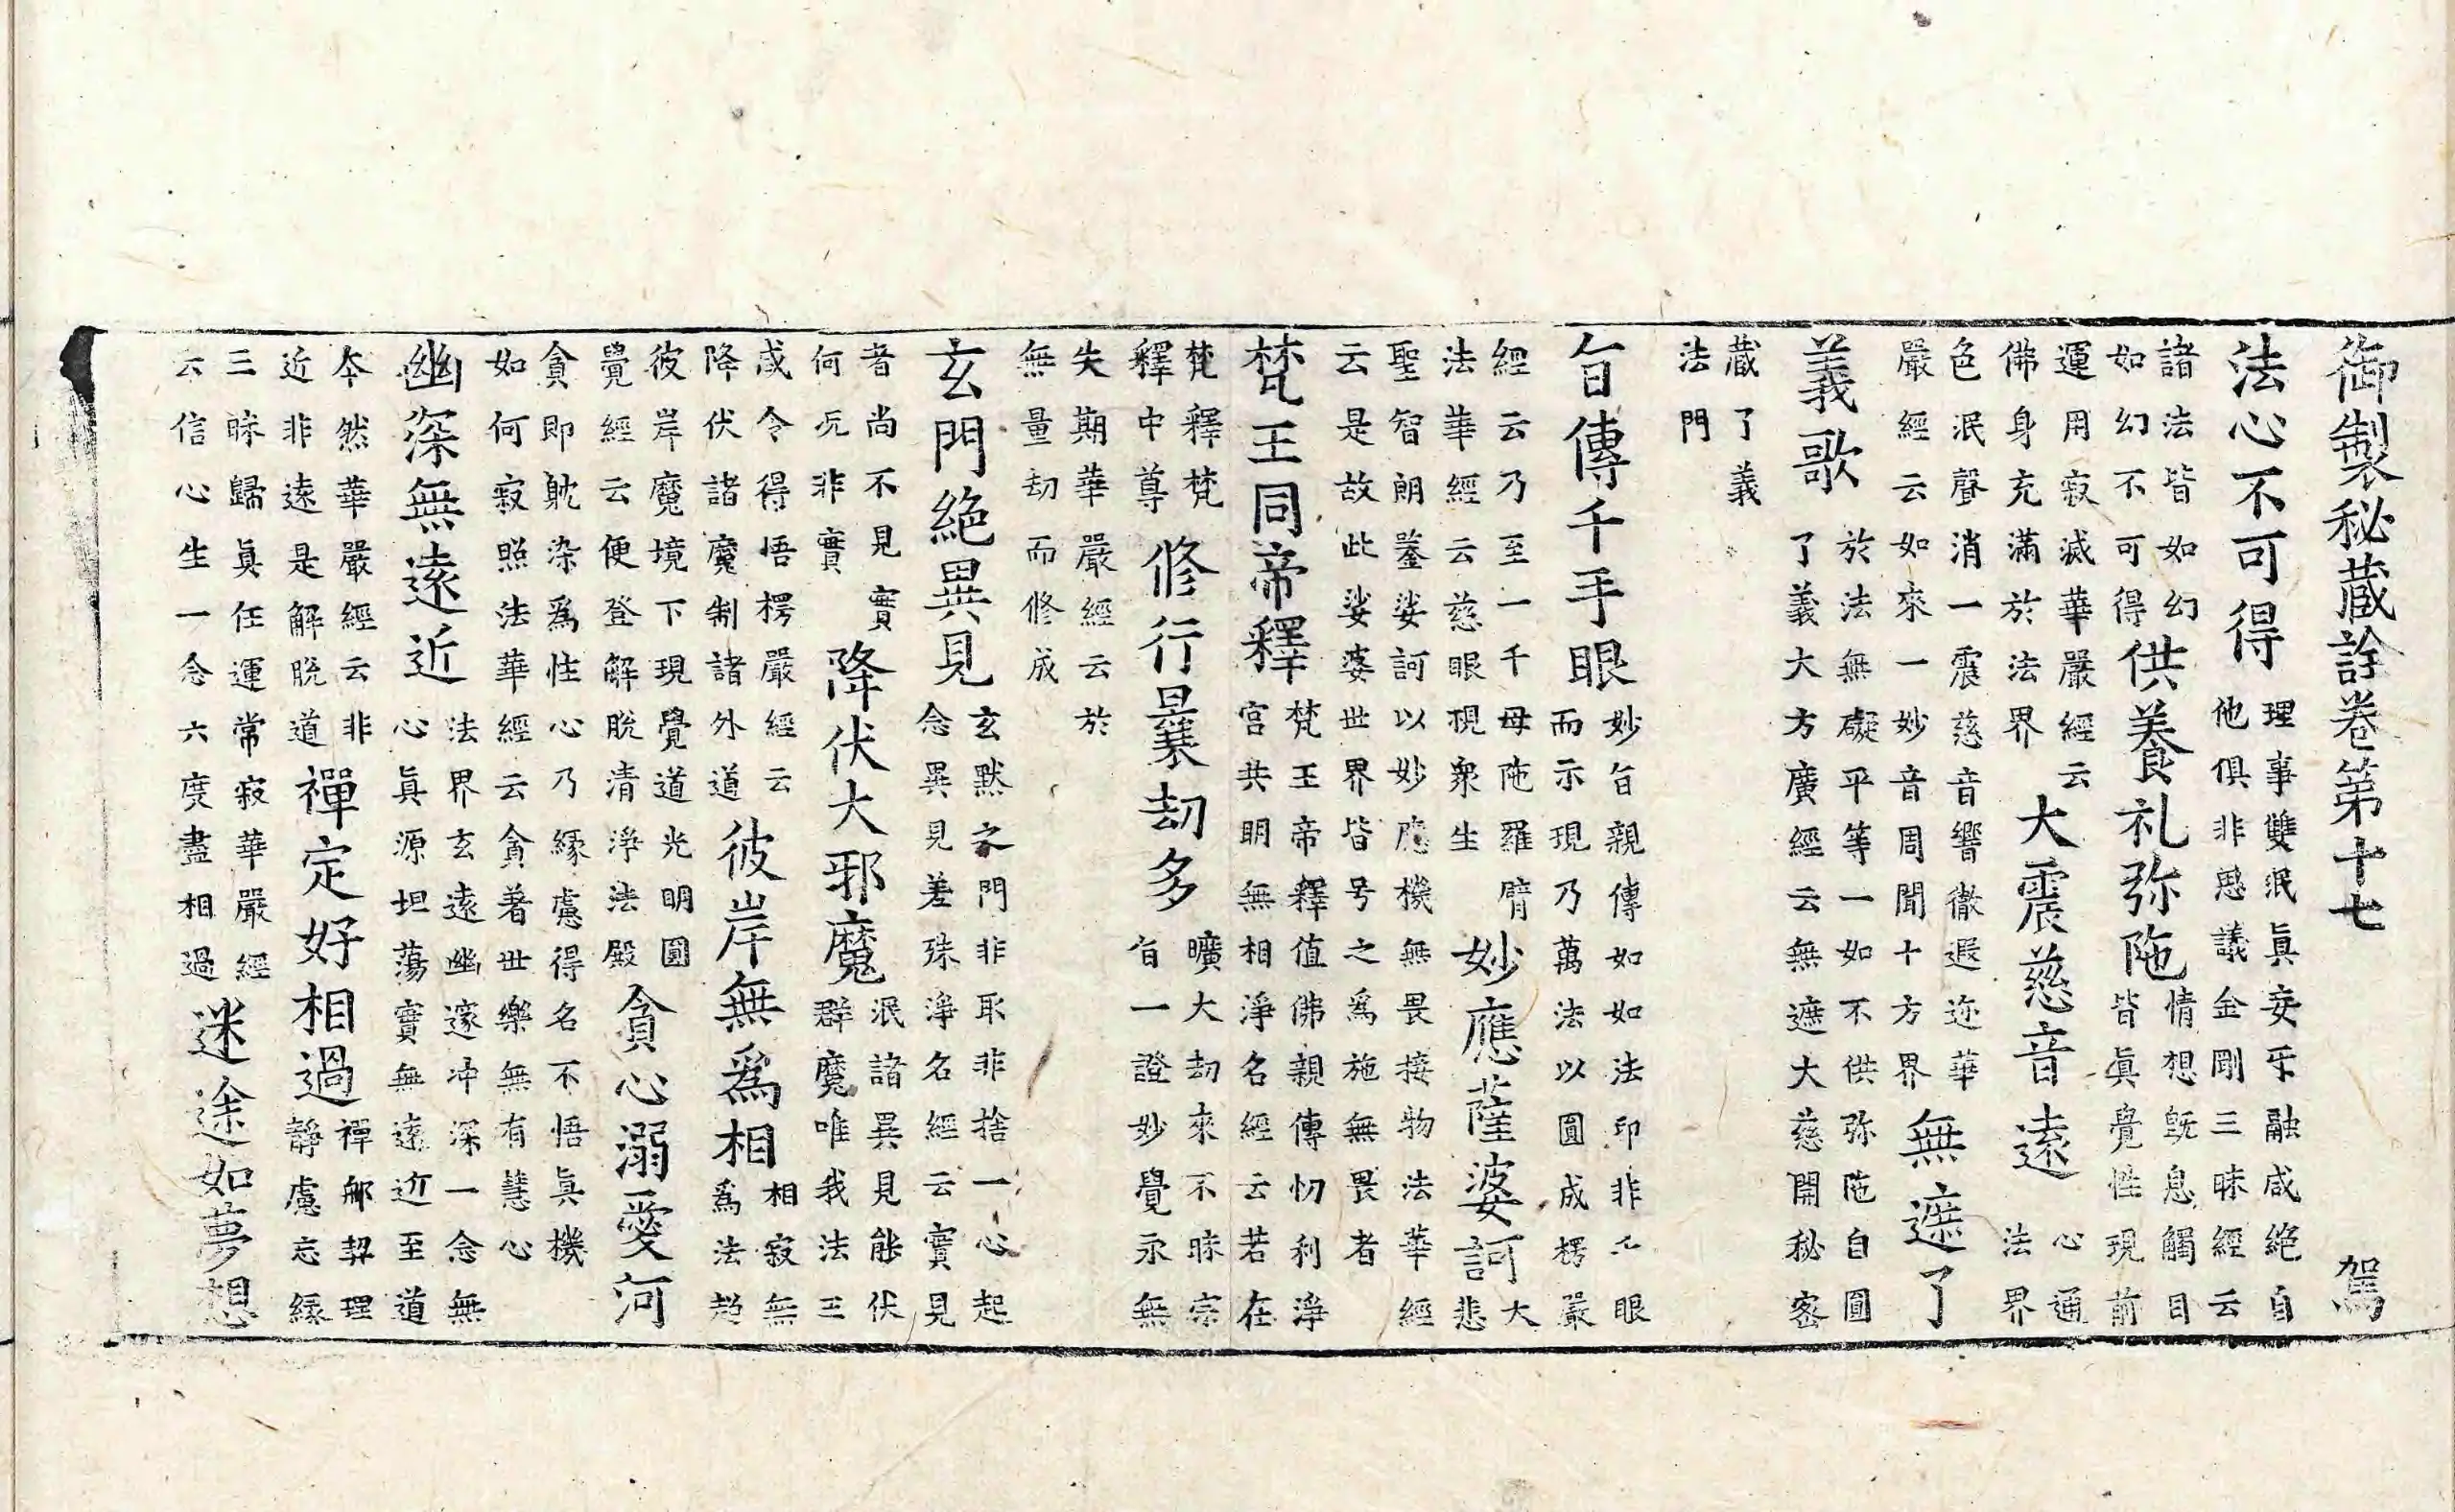 御製秘蔵詮卷第十七 駕
法心不可得
理事雙泯眞妄㸦融咸絶自
他俱非思議金剛三昧經云
諸法皆如幻
如幻不可得
供養礼弥陁
情想旣息觸目
皆眞覺性現前
運用寂滅華嚴經云
佛身充滿於法界
大震慈音遠
心通
法界
色泯聲消一震慈音響徹遐迩華
嚴經云如來一妙音周聞十方界
無遮了
義歌
於法無礙平等一如不供弥陁自圓
了義大方廣經云無遮大慈開秘密
蔵了義
法門
旨傳千手眼
妙旨親傳如如法印非千眼
而示現乃萬法以圓成楞嚴
經云乃至一千母陁羅臂
法華經云慈眼視衆生
妙應薩婆訶
大
悲
聖智朗鑒娑訶以妙應機無畏接物法華經
云是故此娑婆世界皆号之爲施無畏者
梵王同帝釋
梵王帝釋值佛親傳忉利淨
宫共明無相淨名經云若在
梵釋梵
釋中尊
修行曩劫多
曠大劫來不昧宗
旨一證妙覺永無
失期華嚴經云於
無量劫而修成
玄門絶異見
玄黙之門非取非捨一心起
念異見差殊淨名經云實見
者尚不見實
何况非實
降伏大邪魔
泯諸異見能伏
群魔唯我法王
咸令得悟楞嚴經云
降伏諸魔制諸外道
彼岸無爲相
相寂無
爲法超
彼岸魔境下現覺道光明圓
覺經云便登解脱清淨法殿
貪心溺愛河
貪即躭染爲性心乃緣慮得名不悟眞機
如何寂照法華經云貪著世樂無有慧心
幽深無遠近
法界玄遠幽邃冲深一念無
心眞源坦蕩實無遠近至道
本然華嚴經云非
近非遠是解脱道
禪定好相過
禪那契理
靜慮忘緣
三昧歸眞任運常寂華嚴經
云信心生一念六度盡相過
迷途如夢想